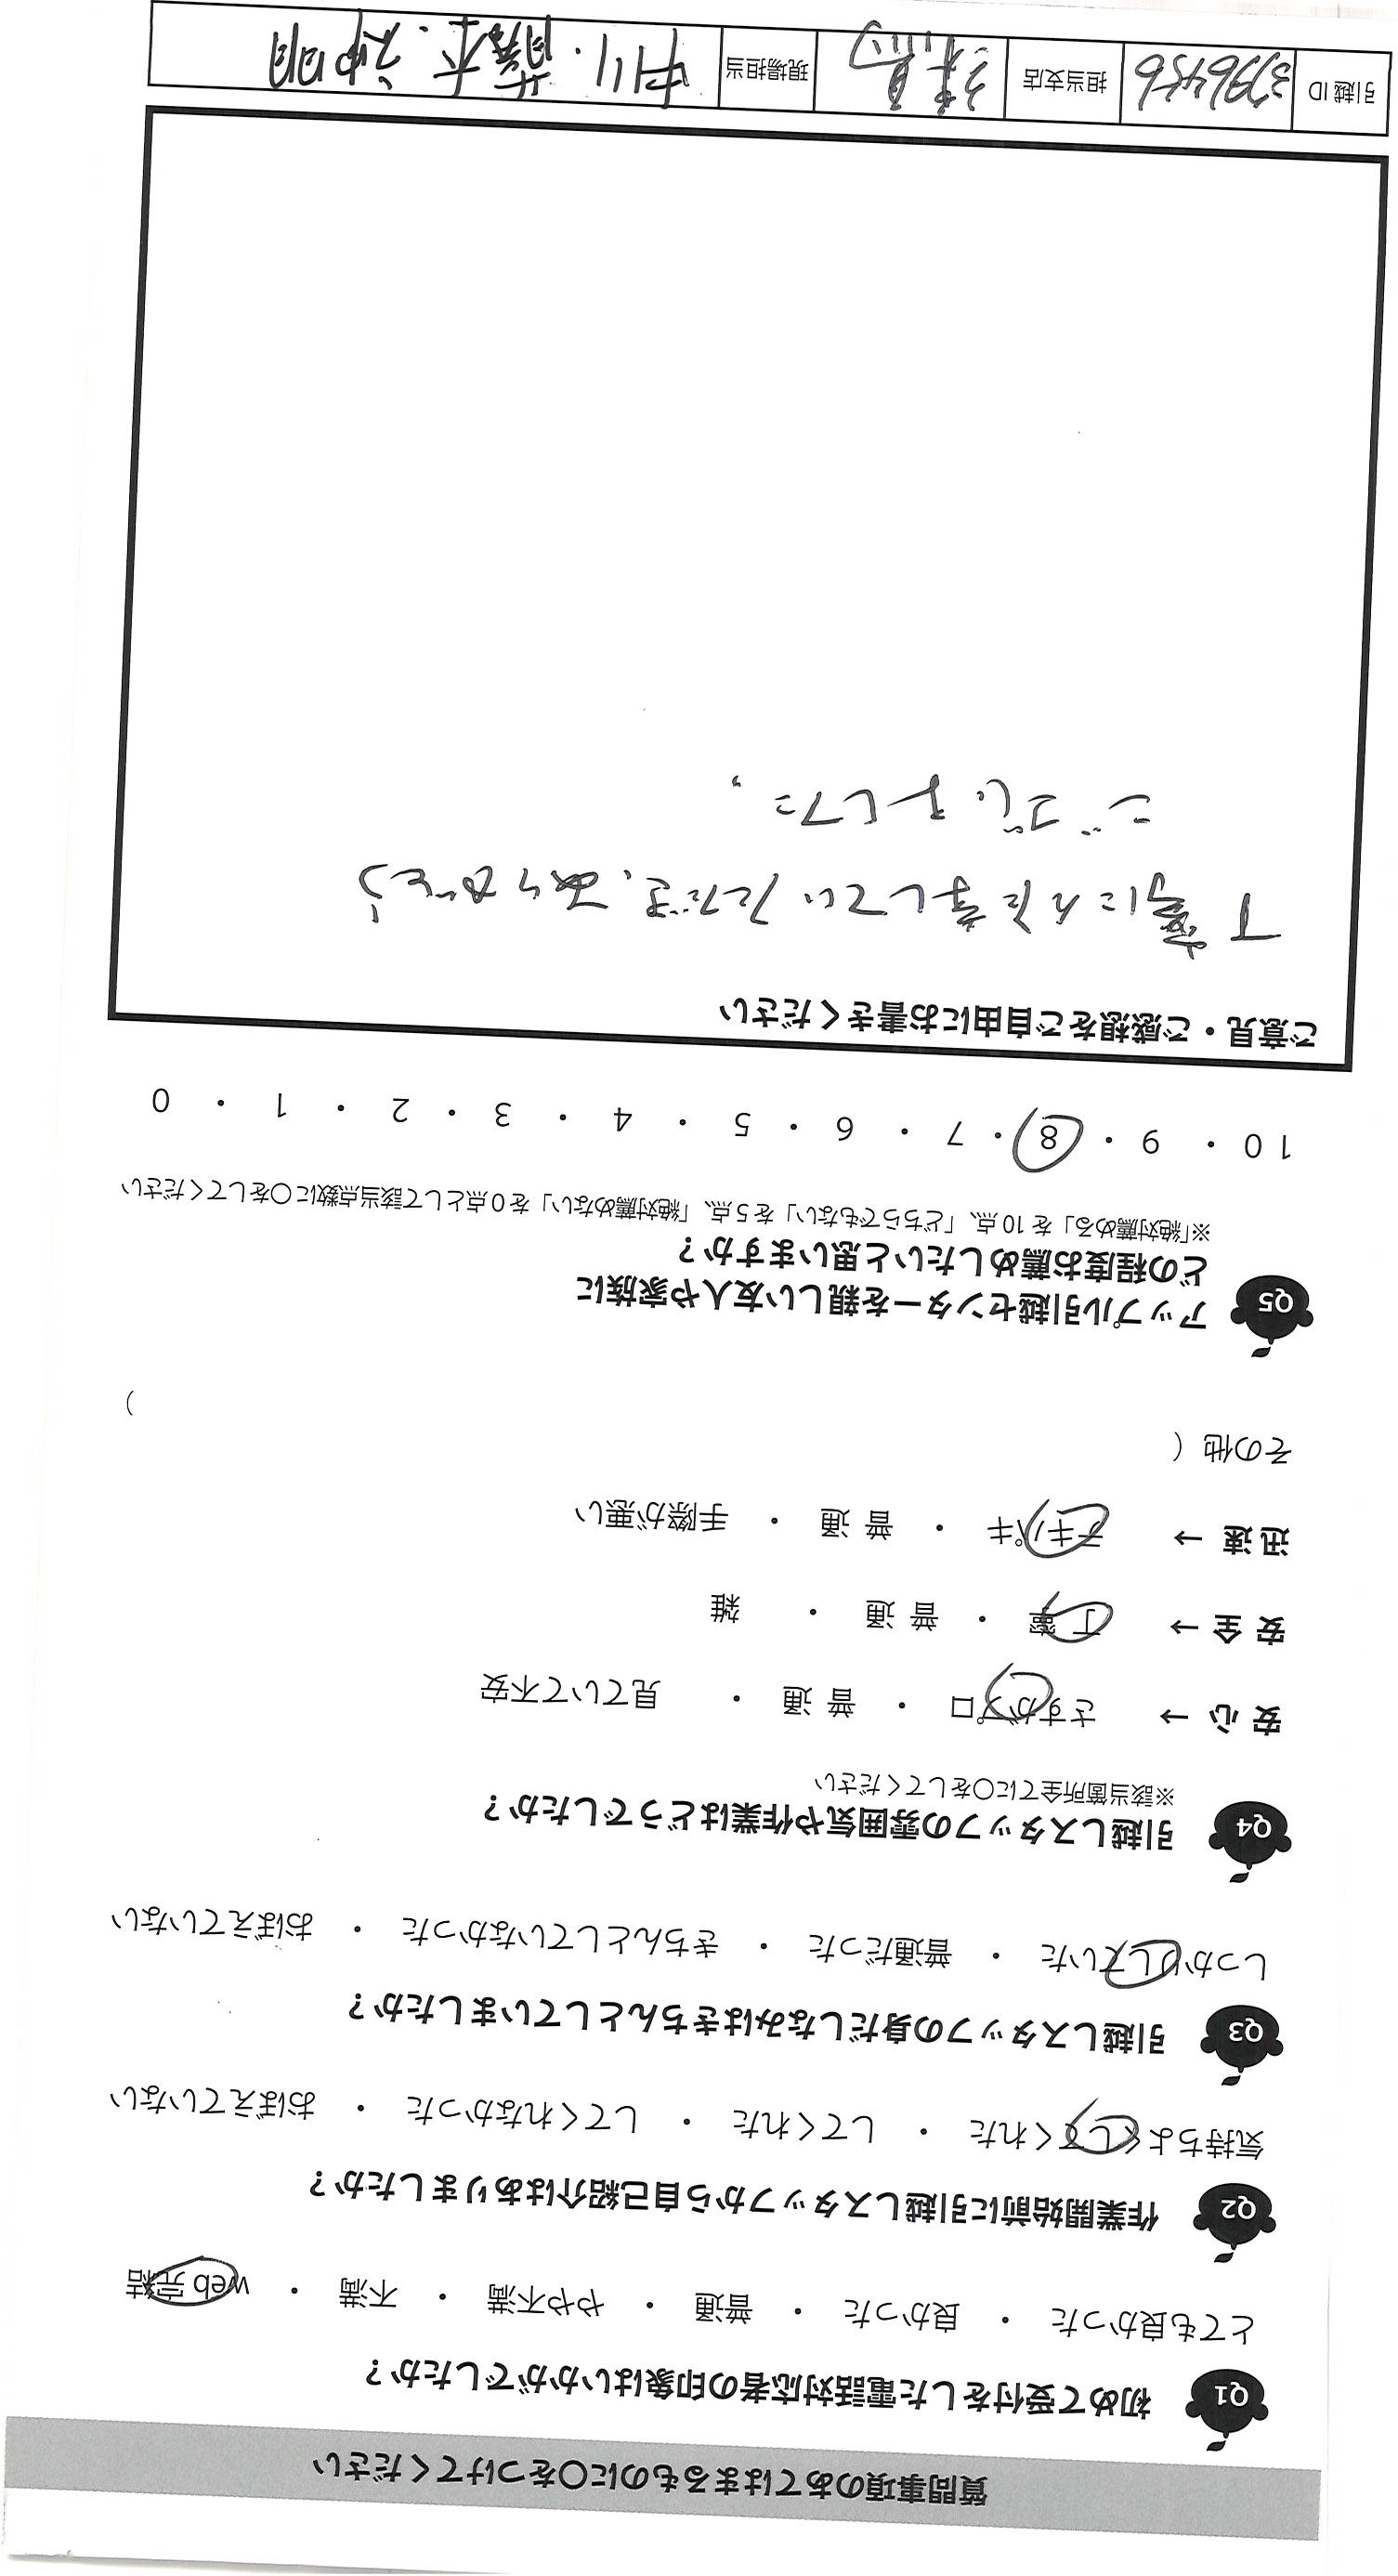 質問事項のあてはまるものに〇をつけてください
Q1 初めて受付をした電話対応者の印象はいかがでしたか？
とても良かった ・ 良かった ・ 普通 ・ やや不満 ・ 不満 ・ web 完結
Q2 作業開始前に引越しスタッフから自己紹介はありましたか？
気持ちよくしてくれた ・ してくれた ・ してくれなかった ・ おぼえていない
Q3 引越しスタッフの身だしなみはきちんとしていましたか？
しっかりしていた ・ 普通だった ・ きちんとしていなかった ・ おぼえていない
Q4 引越しスタッフの雰囲気や作業はどうでしたか？
※該当箇所全てに〇をしてください
安心 → さすがプロ ・ 普通 ・ 見ていて不安
安全 → 丁寧 ・ 普通 ・ 雑
迅速 → テキパキ ・ 普通 ・ 手際が悪い
その他（ ）
Q5 アップル引越センターを親しい友人や家族に
どの程度お薦めしたいと思いますか？
※「絶対薦める」を 10 点、「どちらでもない」を 5 点、「絶対薦めない」を 0 点として該当点数に〇をしてください
10 ・ 9 ・ 8 ・ 7 ・ 6 ・ 5 ・ 4 ・ 3 ・ 2 ・ 1 ・ 0
ご意見・ご感想をご自由にお書きください
丁寧に していただき、ありがとう
ございました。
引越 ID 担当支店 練馬 現場担当 中川・